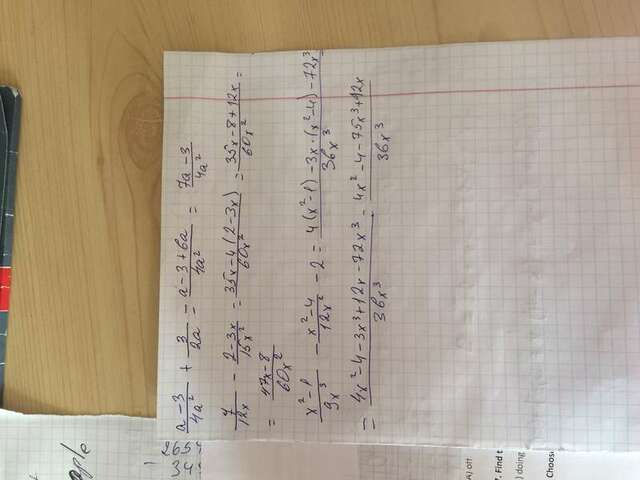 ople
2654
- 34
a-3/4a² + 3/2a = a-3+6a/4a² = 7a-3/4a²
7/12x - 2-3x/15x² = 35x-4(2-3x)/60x² = 35x-8+12x/60x² =
= 47x-8/60x²
x²-1/9x³ - x²-4/12x² - 2 = 4(x²-1)-3x·(x²-4)-72x³/36x³
= 4x²-4-3x³+12x-72x³/36x³ = 4x²-4-75x³+12x/36x³
A) off
7. Find t
) doing
Choos